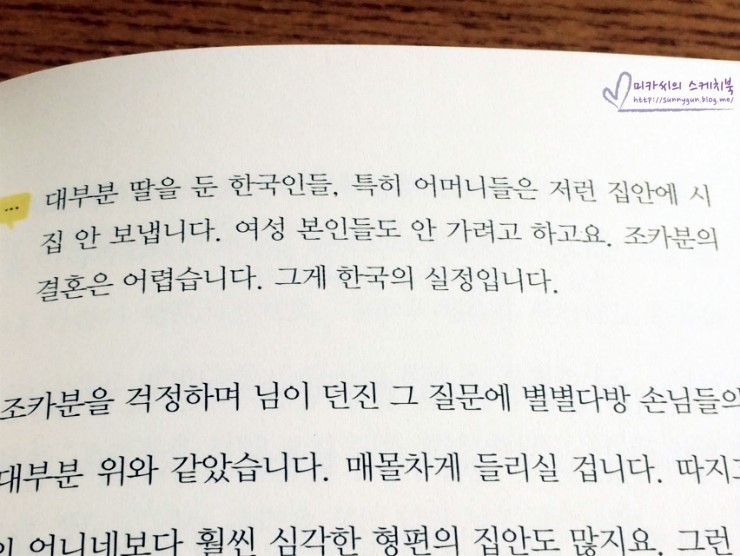 미카씨의 스케치북
http://sunnygun.blog.me/
대부분 딸을 둔 한국인들, 특히 어머니들은 저런 집안에 시
집 안 보냅니다. 여성 본인들도 안 가려고 하고요. 조카분의
결혼은 어렵습니다. 그게 한국의 실정입니다.
조카분을 걱정하며 님이 던진 그 질문에 별별다방 손님들의
대부분 위와 같았습니다. 매몰차게 들리실 겁니다. 따지고
언니네보다 훨씬 심각한 형편의 집안도 많지요. 그런